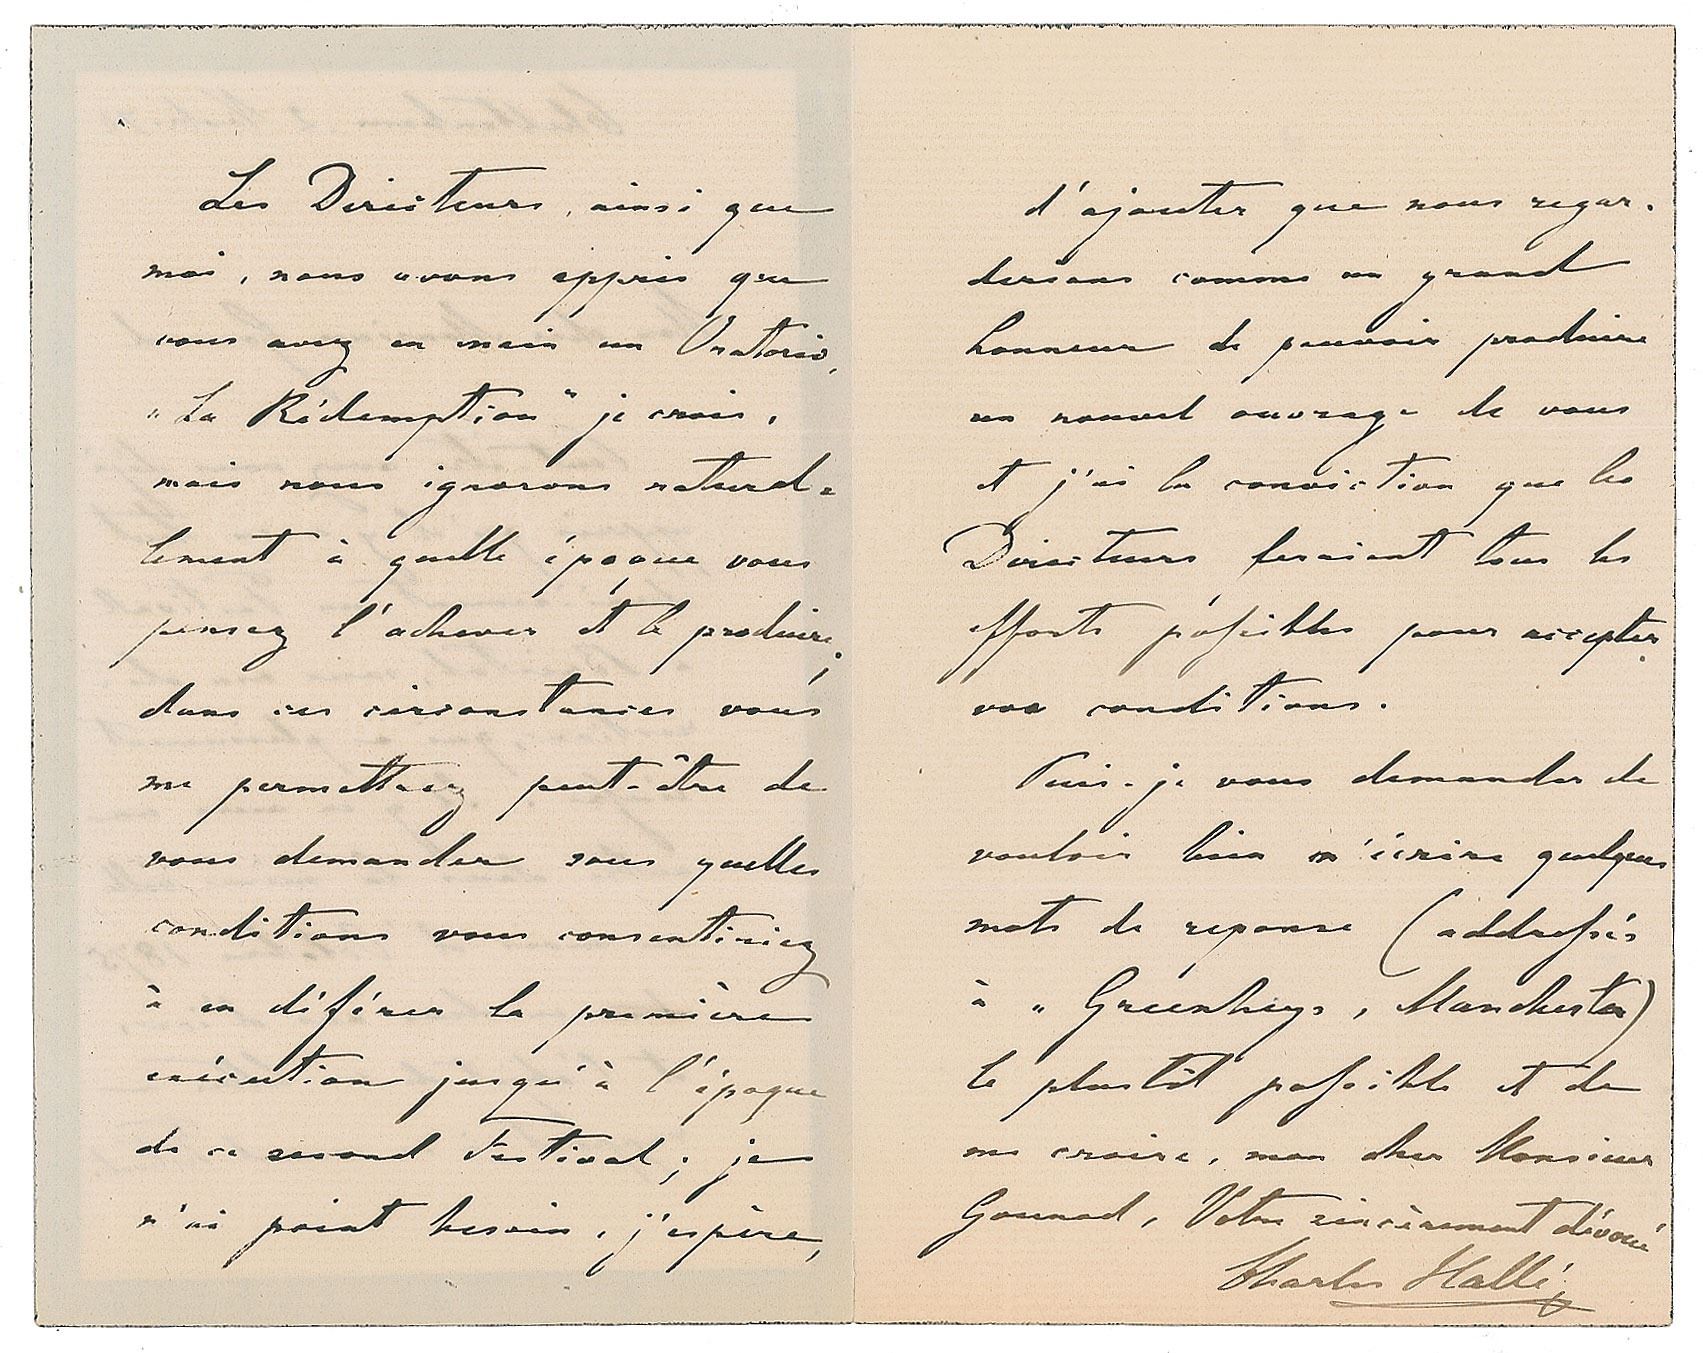 Les Directeurs, ainsi que
moi, nous avons appris que
vous avez en main un Oratorio,
"La Rédemption" je crois,
mais nous ignorons naturel=
lement à quelle époque vous
pensez l'achever et le produire;
dans ces circonstances vous
me permettrez peut-être de
vous demander sous quelles
conditions vous consentiriez
à en diférer la première
exécution jusqu'à l'époque
de ce second Festival; je
n'ai point besoin, j'espère,
d'ajouter que nous regar-
derions comme un grand
honneur de pouvoir produire
un nouvel ouvrage de vous
et j'ai la conviction que les
Directeurs feraient tous les
efforts possibles pour accepter
vos conditions.
Puis-je vous demander de
vouloir bien m'écrire quelques
mots de reponse (addressés
à "Greenheys, Manchester)
le plustôt possible et de
me croire, mon cher Monsieur
Gounod, Votre sincèrement dévoué
Charles Hallé